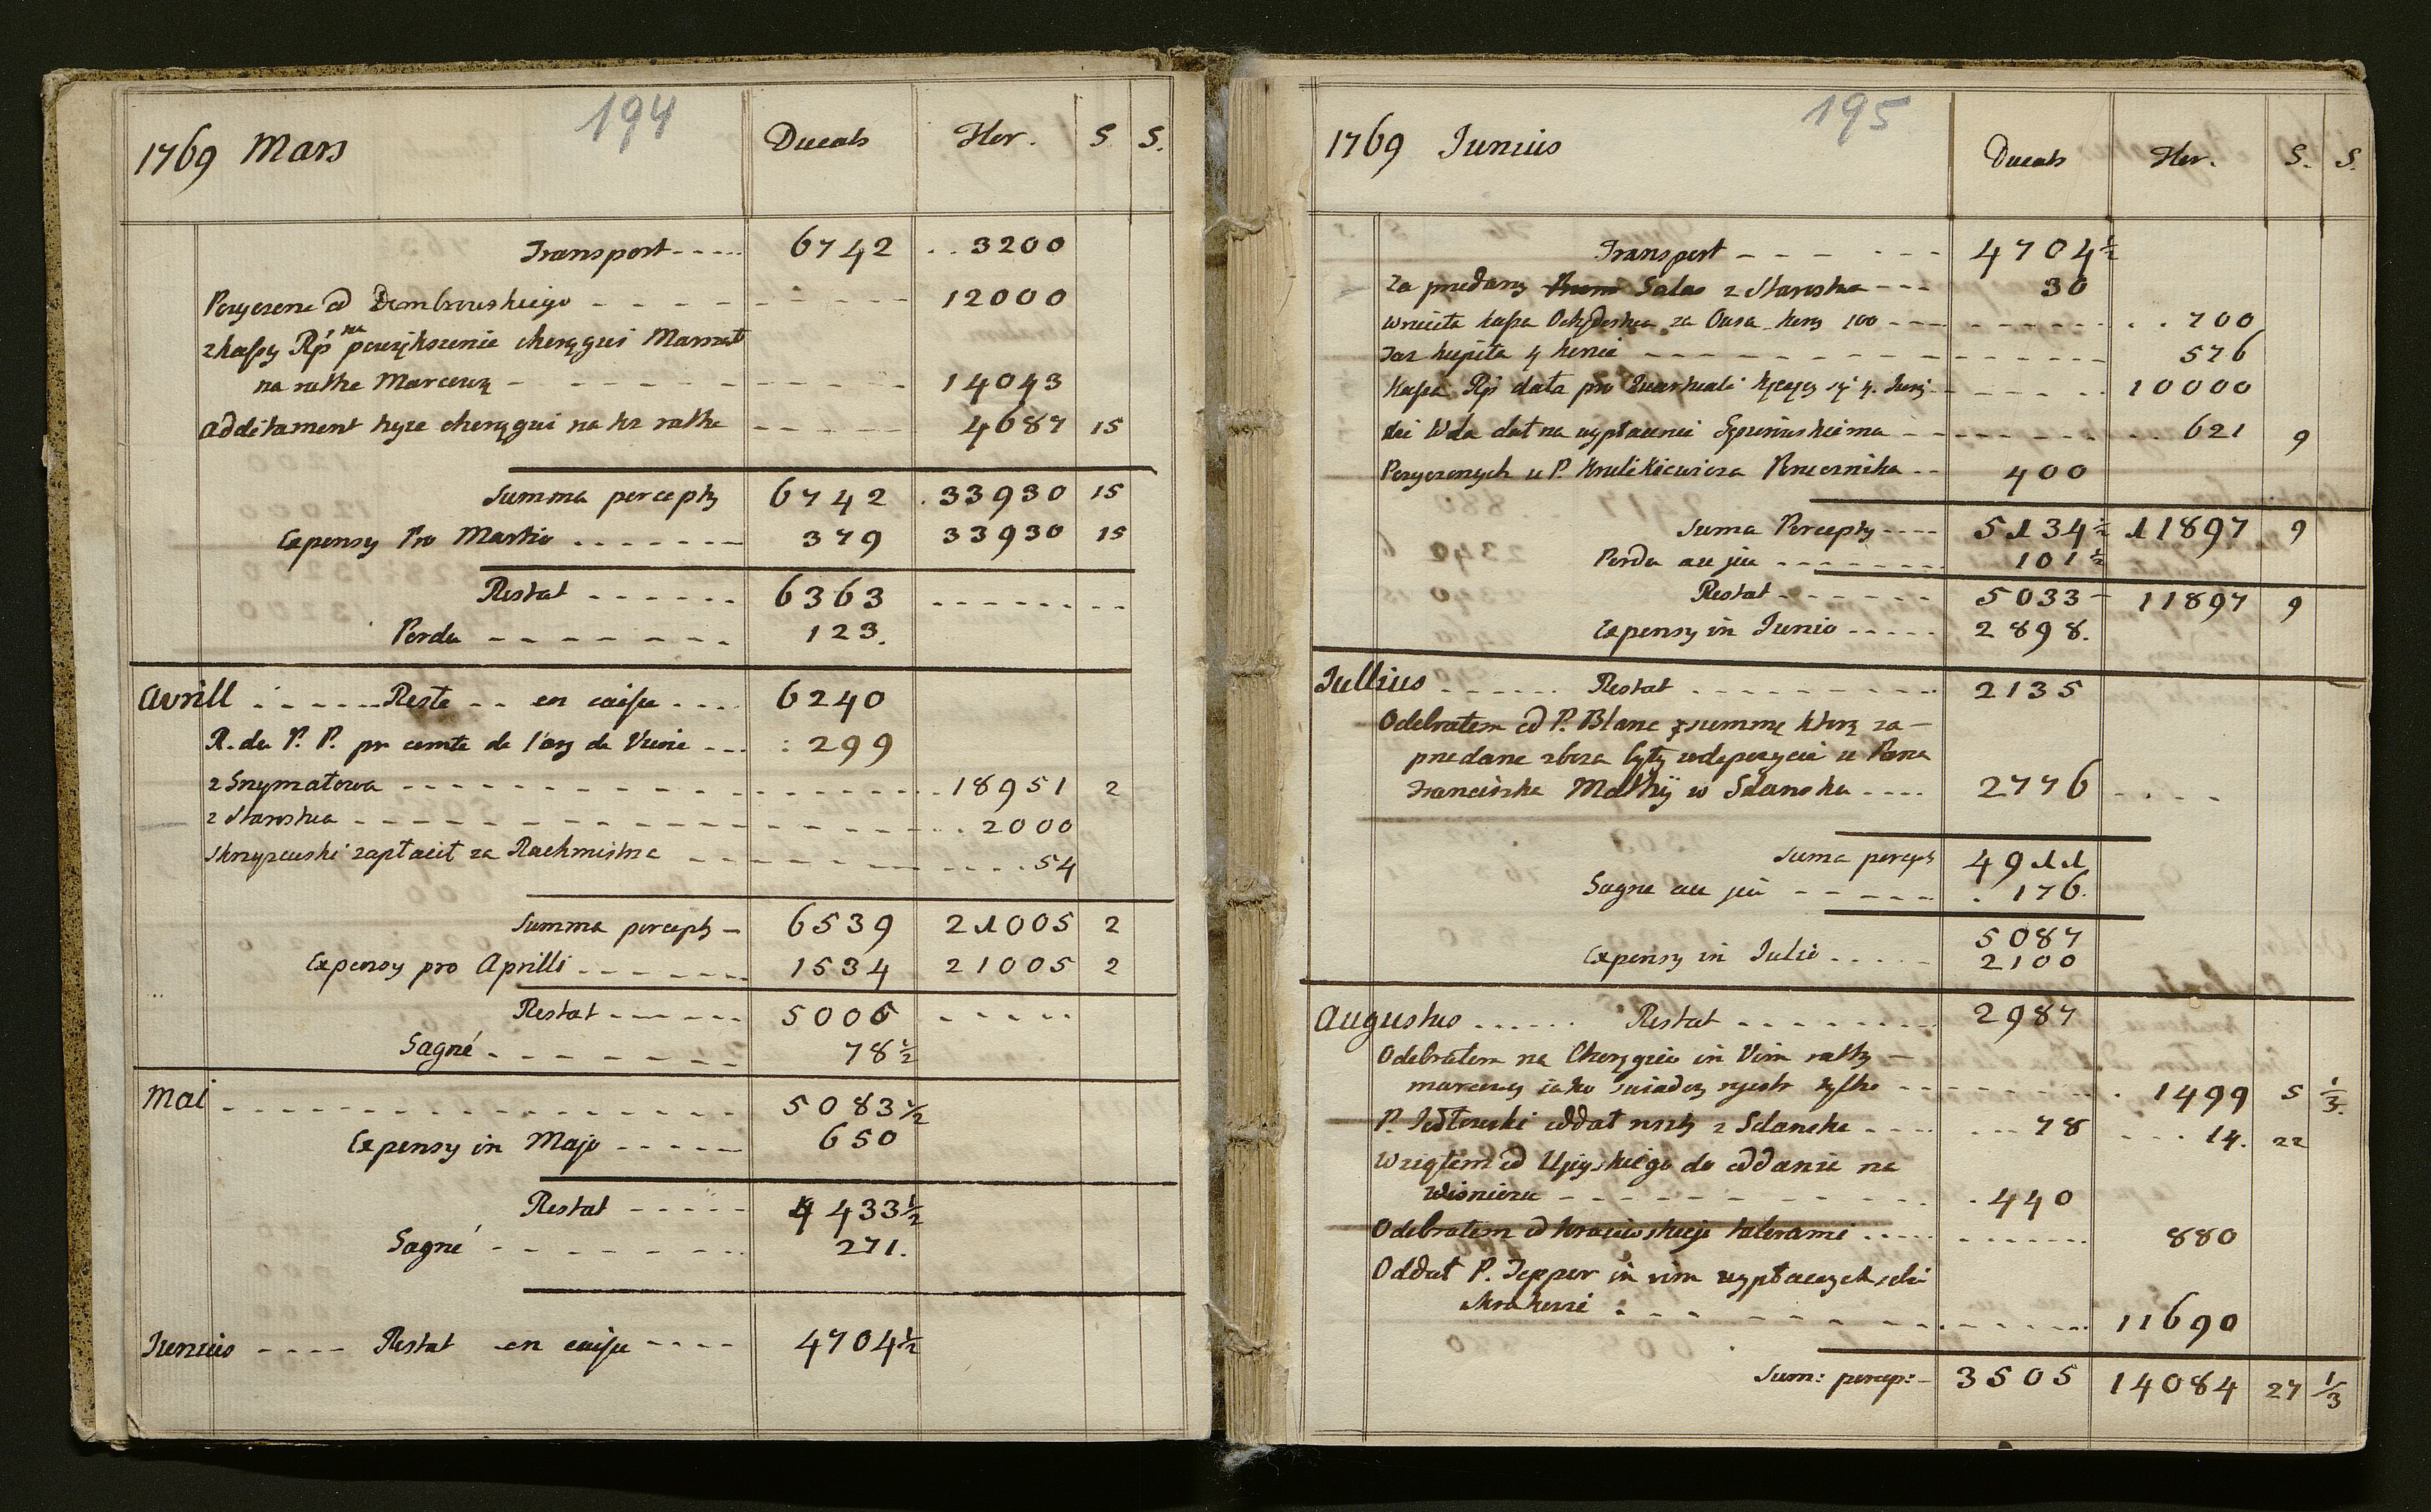 194
1769 Mars Ducats Flor. S. S.
Transport 6742 3200
Pozyczone od Dembrowskiego 12000
z kassy Rp na powiększenie chorągwi
na rathe Marcową 14043
additament tyze chorągwi na tez rathe 4687 15
Summa percepty 6742 33930 15
Expensy Pro Martio 379 33930 15
Restat 6363
Perdu 123.
Avrill Reste en caisse 6240
R. du P. P. pr comte de l'arg de 299
z Szrymatowa 18951 2
z Starostwa 2000
Skrzyzewski zapłacił za Rachmistrza 54
Summa percepty 6539 21005 2
Expensy pro Aprilli 1534 21005 2
Restat 5006
Gagné 78 1/2
Mai 5083 1/2
Expensy in Majo 650
Restat 4433 1/2
Gagné 271.
Junius Restat en caisse 4704 1/2
195
1769 Junius Ducats Flor. S. S.
Transport 4704 1/2
Za przedany Salas z Starostwa 30
wrócita kassa za Konsz 100 700
Taz kupita 4 konie 576
Kassa Rp data pro Quartali 10000
dał na wypłacenie 621 9
Pozyczonych u P. Krulikiewicza Porucznika 400
Suma Percepty 5134 1/2 11897 9
Perdu au jeu 101 1/2
Restat 5033 11897 9
Expensy in Junio 2898.
Jullius Restat 2135
Odebratem od P. Blanc z summę ktorą za
przedane zboza były w depozycie u Pana
Franciszka Mathy w Gdansku 2776
Suma percept 4911
Gagne au jeu 176.
5087
Expensy in Julio 2100
Augustus Restat 2987
Odebratem na Chorągiew in Vim rathy
marcowey iako swiadczy rejestr tylko 1499 5 1/3.
P. oddał reszty z Gdanska 78 14. 22
Wziąłem od Ujeyskiego do oddania na
440
Odebratem od talerami 880
Oddał P. Tepper in vim wypłaconych
11690
Sum: percep: 3505 14084 27 1/3